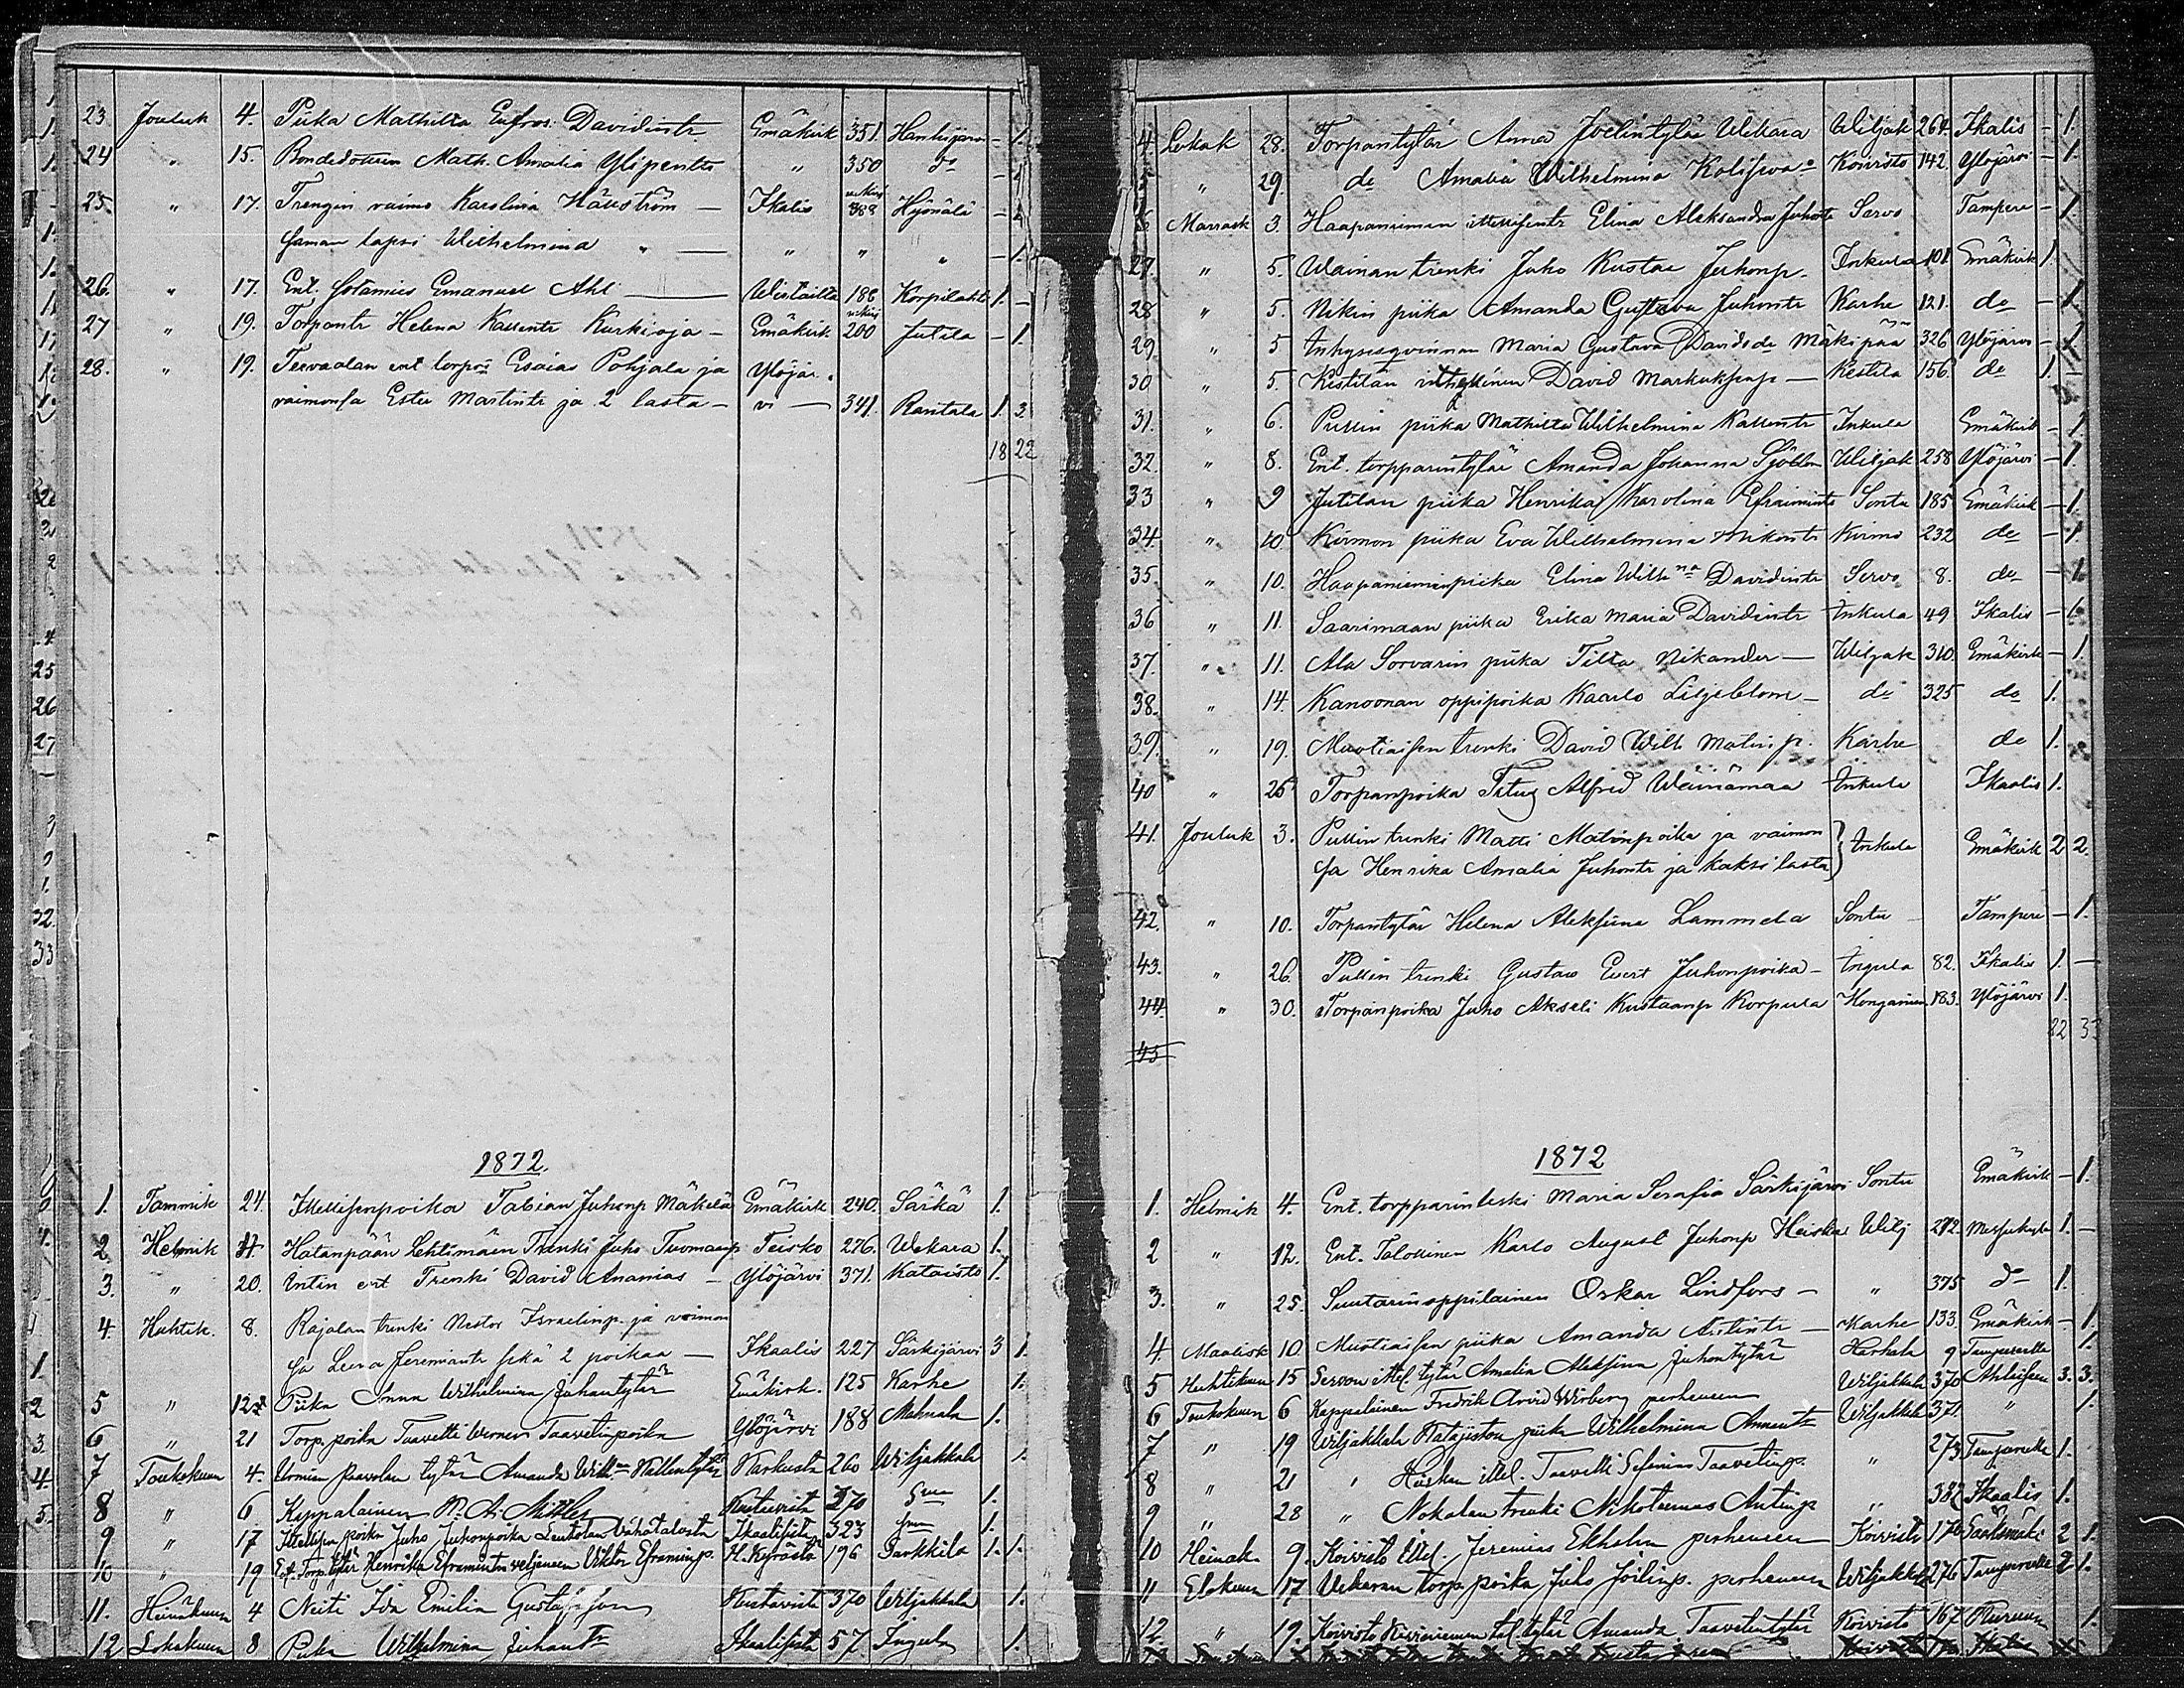 23. Jouluk 4. Piika Mathilta Eufros. Davidintr Emäkirk 351. Hanhijärvi - 1.
24 " 15. Bondedottern Math. Amalia Ylipentti " 350 do - 1
25. " 17. Trengin vaimo Karolina Hällström — Ikalis 388 Hyönälä - 1
saman lapsi Wilhelmina " — " " " - 1.
26. " 17. Ent. sotamies Emanuel Ahl — 186 Korpilahti 1. -
27 " 19. Torpantr Helena Kallentr Kurkioja - Emäkirk 200 Jutila - 1
28. " 19. ent torpp Esaias Pohjala ja Ylöjär
vaimonsa Ester Martintr ja 2 lasta - vi — 341. Rantala 1. 3.
18 22
1872.
1. Tammik 24. Itsellisenpoika Fabian Juhonp Mäkelä Emäkirk 240. Särkä 1.
2. Helmik Hatanpään Lehtimäen Trenki Juho Tuomaanp Teisko 276. Wekara 1.
3. " 20. Antin ent Trenki David Ananias - Ylöjärvi 371. Kataisto 1.
4. Huhtik. 8. Rajalan trenki Nestor Israelinp. ja vaimon
sa Leena Jeremiantr sekä 2 poikaa — Ikaalis 227 Särkijärvi 3 1.
5 " 12 Piika Anna Wilhelmina Juhantytär Emäkirk. 125 Karhe 1.
6 " 21 Torp. poika Taavetti Werner Taavetinpoika Ylöjärvi 188 1.
7 Toukokuun 4. Paavolan tytär Amanda Wilh:na Kallentytär Karkusta 260 Wiljakkala 1.
8 " 6 Kappalainen K. A. 270 1.
9 " 17 Itsellisen poika Juho Juhonpoika Ikaalisista 323 1.
10 " 19 Ent. Torp. tytär Henrika Efraimintr veljeneen Viktor Efraiminp. H. Kyröstä 196 Parkkila 1. 1.
11. Heinäkuun 4 Neiti Ida Emilia Gustafsson Kustavista 370 Wiljakkala 1.
12 Lokakuun 8 Piika Wilhelmina Juhantr Ikaalisista 57. Inkula 1.
4. Lokak 28. Torpantytär Anna Joelintytär Wekara Wiljak 264. Ikalis - 1.
5 " 29. do Amalia Wilhelmina Koivisto 142. Ylöjärvi - 1.
6 Marrask 3. Haapaniemen itsellisentr Elina Aleksandra Juhontr Servo Tampere - 1.
27. " 5. Wainan trenki Juho Kustaa Juhonp. Inkula 101 Emäkirk 1.
28 " 5. Nikin piika Amanda Gustava Juhontr Karhe 121. do - 1.
29 " 5 Inhysesqvinnan Maria Gustava Davidsdr Mäkipää 326 Ylöjärvi - 1
30 " 5. Kestilän David Markuksenp — Kestilä 156. do 1.
31. " 6. Pullin piika Mathilta Wilhelmina Kallentr Inkula Emäkirk - 1
32 " 8. Ent. torpparintytär Amanda Johanna Sjöblom Wiljak 258 Ylöjärvi - 1.
33 " 9 Jutilan piika Henrika Karolina Efraimintr Sontu 185 Emäkirk - 1.
34 " 10. Kirmon piika Eva Wilhelmina Mikontr Kirmo 232 do - 1
35. " 10. Haapaniemin piika Elina Wilh:na Davidintr Servo 8. do - 1.
36 " 11. Saarimaan piika Erika Maria Davidintr Inkula 49 Ikalis - 1.
37. " 11. Ala Sorvarin piika Tilta Nikander — Wiljak 310. Emäkirk - 1.
38. " 14. Kanoonan oppipoika Kaarlo Liljeblom - do 325 do 1.
39. " 19. Muotiaisen trenki David Wilh Matinp. Karhe do 1.
40 " 25 Torpanpoika Titus Alfred Wäinämaa Inkula Ikaalis 1.
41. Jouluk 3. Pullin trenki Matti Matinpoika ja vaimon
sa Henrika Amalia Juhontr ja kaksi lasta Inkula Emäkirk 2 2.
42. " 10. Torpantytär Helena Aleksiina Lammela Sontu Tampere - 1.
43. " 26. Pullin trenki Gustav Evert Juhonpoika - Ingula 82. Ikalis 1. -
44. " 30. Torpanpoika Juho Akseli Kustaanp Korpula 183. Ylöjärvi 1.
22 33
45
1872
1. Helmik 4. Ent. torpparinleski Maria Serafia Särkijärvi Sontu Emäkirk - 1.
2 " 12. Ent. Talollinen Karlo August Juhonp Heiska Wilj 272. 1. -
3. " 25. Suutarinoppilainen Oskar Lindfors - " 375 do 1.
4. Maalisk 10. Muotiaisen piika Amanda Antintr — Karhe 133. Emäkirk - 1.
5 Huhtikuun 15 Servon itsel. tytär Amalia Aleksiina Juhontytär Harhala 9 Tampereelle 1.
6 Toukokuun 6 Kappalainen Fredrik Arvid perheineen Wiljakkala 370 3. 3.
7 " 19 Wiljakkala Katajiston piika Wilhelmina Wiljakkala 371. " 1.
8 " 21 " Heiskan itsel. Taavetti Taavetinp. " 273 Tampereelle 1.
9 " 28 " Nokolan trenki Nikodemus Antinp " 382 Ikaalis 1.
10 Heinäk. 9. Koivisto Itsel. Jeremias Ekholm perheineen Koivisto 176 2 1.
11 Elokuun 17 Wekaran torp. poika Juho Joelinp. perheineen Wiljakkala 276 Tampereelle 2 1.
12. " 19. Koivisto tal. tytär Amanda Taavetintytär Koivisto 167 1.